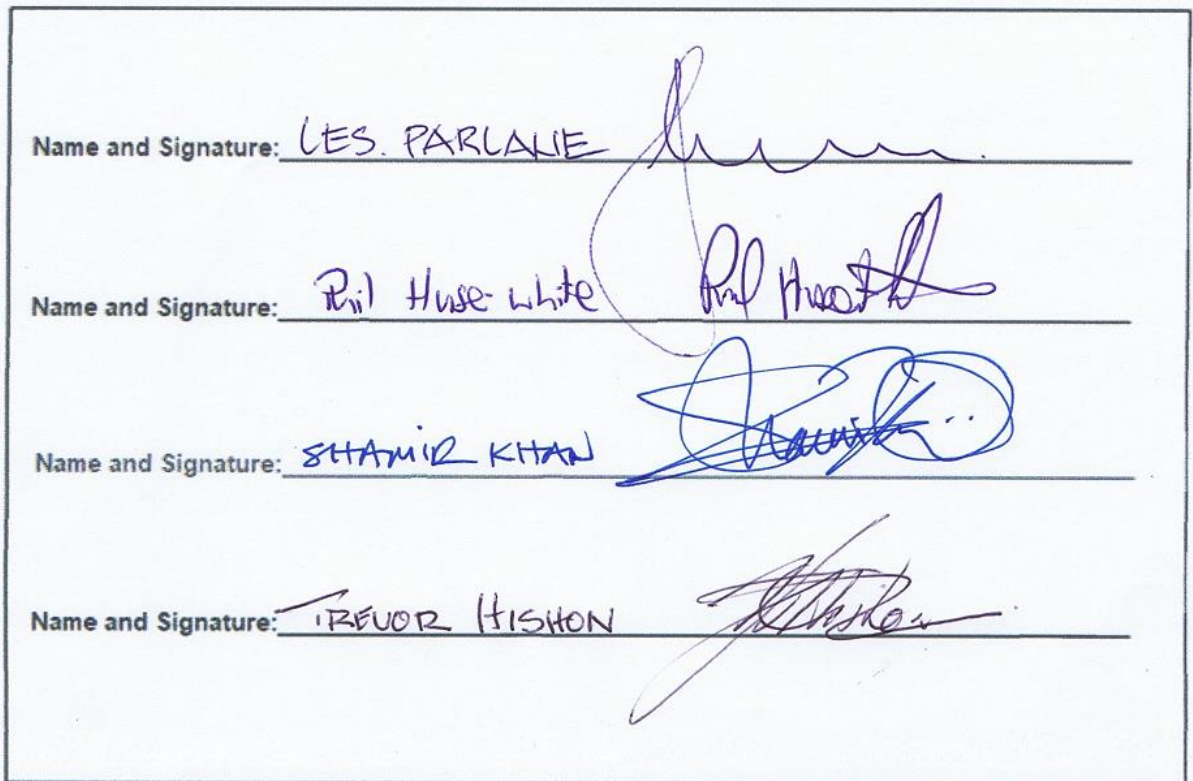 Name and Signature: LES. PARLANE
Name and Signature: Phil Huse-white
Name and Signature: SHAMIR KHAN
Name and Signature: TREVOR HISHON